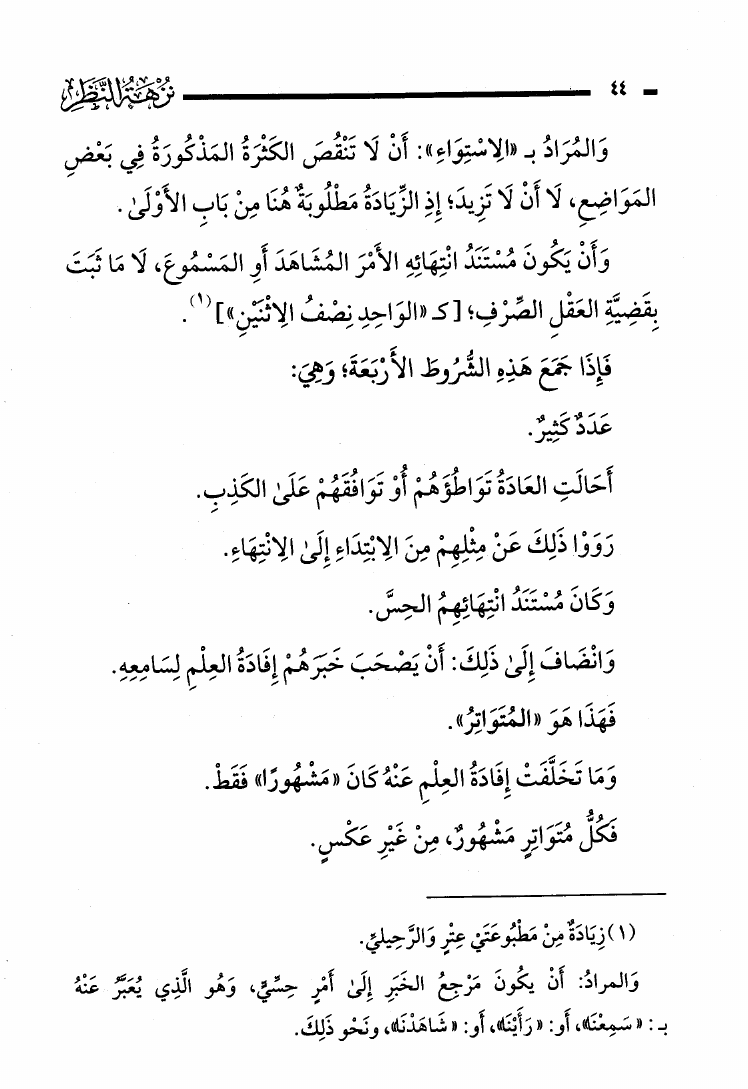 ٤٤ نُزْهَةُ النَّظَرِ
وَالمُرَادُ بـ «الِاسْتِوَاءِ»: أَنْ لَا تَنْقُصَ الكَثْرَةُ المَذْكُورَةُ فِي بَعْضِ
المَوَاضِعِ، لَا أَنْ لَا تَزِيدَ؛ إِذِ الزِّيَادَةُ مَطْلُوبَةٌ هُنَا مِنْ بَابِ الأَوْلَىٰ.
وَأَنْ يَكُونَ مُسْتَنَدُ انْتِهَائِهِ الأَمْرَ المُشَاهَدَ أَوِ المَسْمُوعَ، لَا مَا ثَبَتَ
بِقَضِيَّةِ العَقْلِ الصِّرْفِ؛ [كـ «الوَاحِدِ نِصْفُ الِاثْنَيْنِ»](١).
فَإِذَا جَمَعَ هَذِهِ الشُّرُوطَ الأَرْبَعَةَ؛ وَهِيَ:
عَدَدٌ كَثِيرٌ.
أَحَالَتِ العَادَةُ تَوَاطُؤَهُمْ أَوْ تَوَافُقَهُمْ عَلَىٰ الكَذِبِ.
رَوَوْا ذَلِكَ عَنْ مِثْلِهِمْ مِنَ الِابْتِدَاءِ إِلَىٰ الِانْتِهَاءِ.
وَكَانَ مُسْتَنَدُ انْتِهَائِهِمُ الحِسَّ.
وَانْضَافَ إِلَىٰ ذَلِكَ: أَنْ يَصْحَبَ خَبَرَهُمْ إِفَادَةُ العِلْمِ لِسَامِعِهِ.
فَهَذَا هَوَ «المُتَوَاتِرُ».
وَمَا تَخَلَّفَتْ إِفَادَةُ العِلْمِ عَنْهُ كَانَ «مَشْهُورًا» فَقَطْ.
فَكُلُّ مُتَوَاتِرٍ مَشْهُورٌ، مِنْ غَيْرِ عَكْسٍ.
(١) زِيَادَةٌ مِنْ مَطْبُوعَتَيْ عِتْرٍ وَالرَّحِيلِيِّ.
وَالمرادُ: أَنْ يكُونَ مَرْجِعُ الخَبَرِ إِلَىٰ أَمْرٍ حِسِّيٍّ، وَهُو الَّذِي يُعَبَّرُ عَنْهُ
بـ: «سَمِعْنَا»، أَو: «رَأَيْنَا»، أَو: «شَاهَدْنَا»، ونَحْو ذَلِكَ.